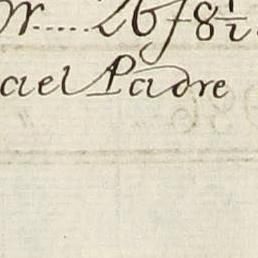 or..... 26f8½
ael Padre